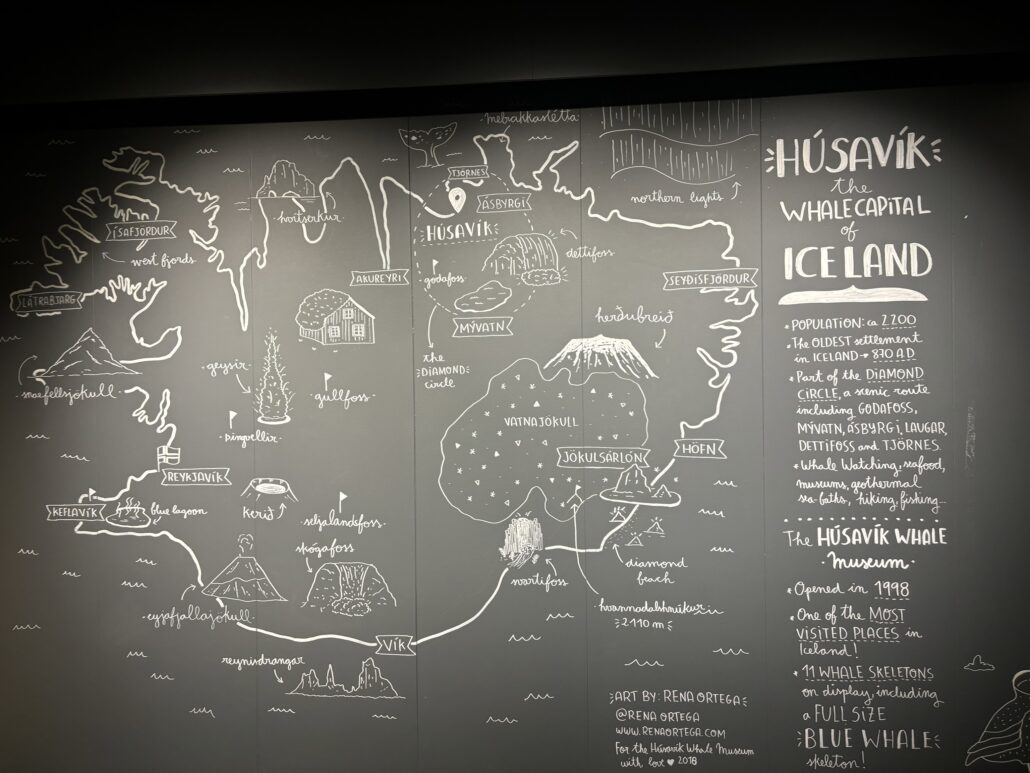 melrakkaslétta
TJÖRNES
ÁSBYRGI
HÚSAVÍK
northern lights
hvítserkur
ÍSAFJÖRDUR
west fjords
LÁTRABJARG
AKUREYRI
godafoss
dettifoss
SEYDISFJÖRDUR
MÝVATN
herdubreið
the
DIAMOND
circle
snaefellsjökull
geysir
gullfoss
þingvellir
VATNAJÖKULL
JÖKULSÁRLÓN
HÖFN
REYKJAVÍK
KEFLAVÍK
blue lagoon
kerið
seljalandsfoss
skógafoss
svartifoss
diamond
beach
hvannadalshnúkur
2110 m
eyjafjallajökull
VÍK
reynisdrangar
ART BY: RENA ORTEGA
@RENA ORTEGA
WWW.RENAORTEGA.COM
For the Húsavík Whale Museum
with love ♥ 2018
HÚSAVÍK
the
WHALE CAPITAL
of
ICELAND
• POPULATION: ca 2200
• The OLDEST settlement
in ICELAND → 870 A.D
• Part of the DIAMOND
CIRCLE, a scenic route
including GODAFOSS,
MÝVATN, ÁSBYRGI, LAUGAR,
DETTIFOSS and TJÖRNES.
• Whale Watching, seafood,
museums, geothermal
sea-baths, hiking, fishing...
The HÚSAVÍK WHALE
• Museum •
• Opened in 1998
• One of the MOST
VISITED PLACES in
Iceland!
• 11 WHALE SKELETONS
on display, including
a FULL SIZE
BLUE WHALE
skeleton!